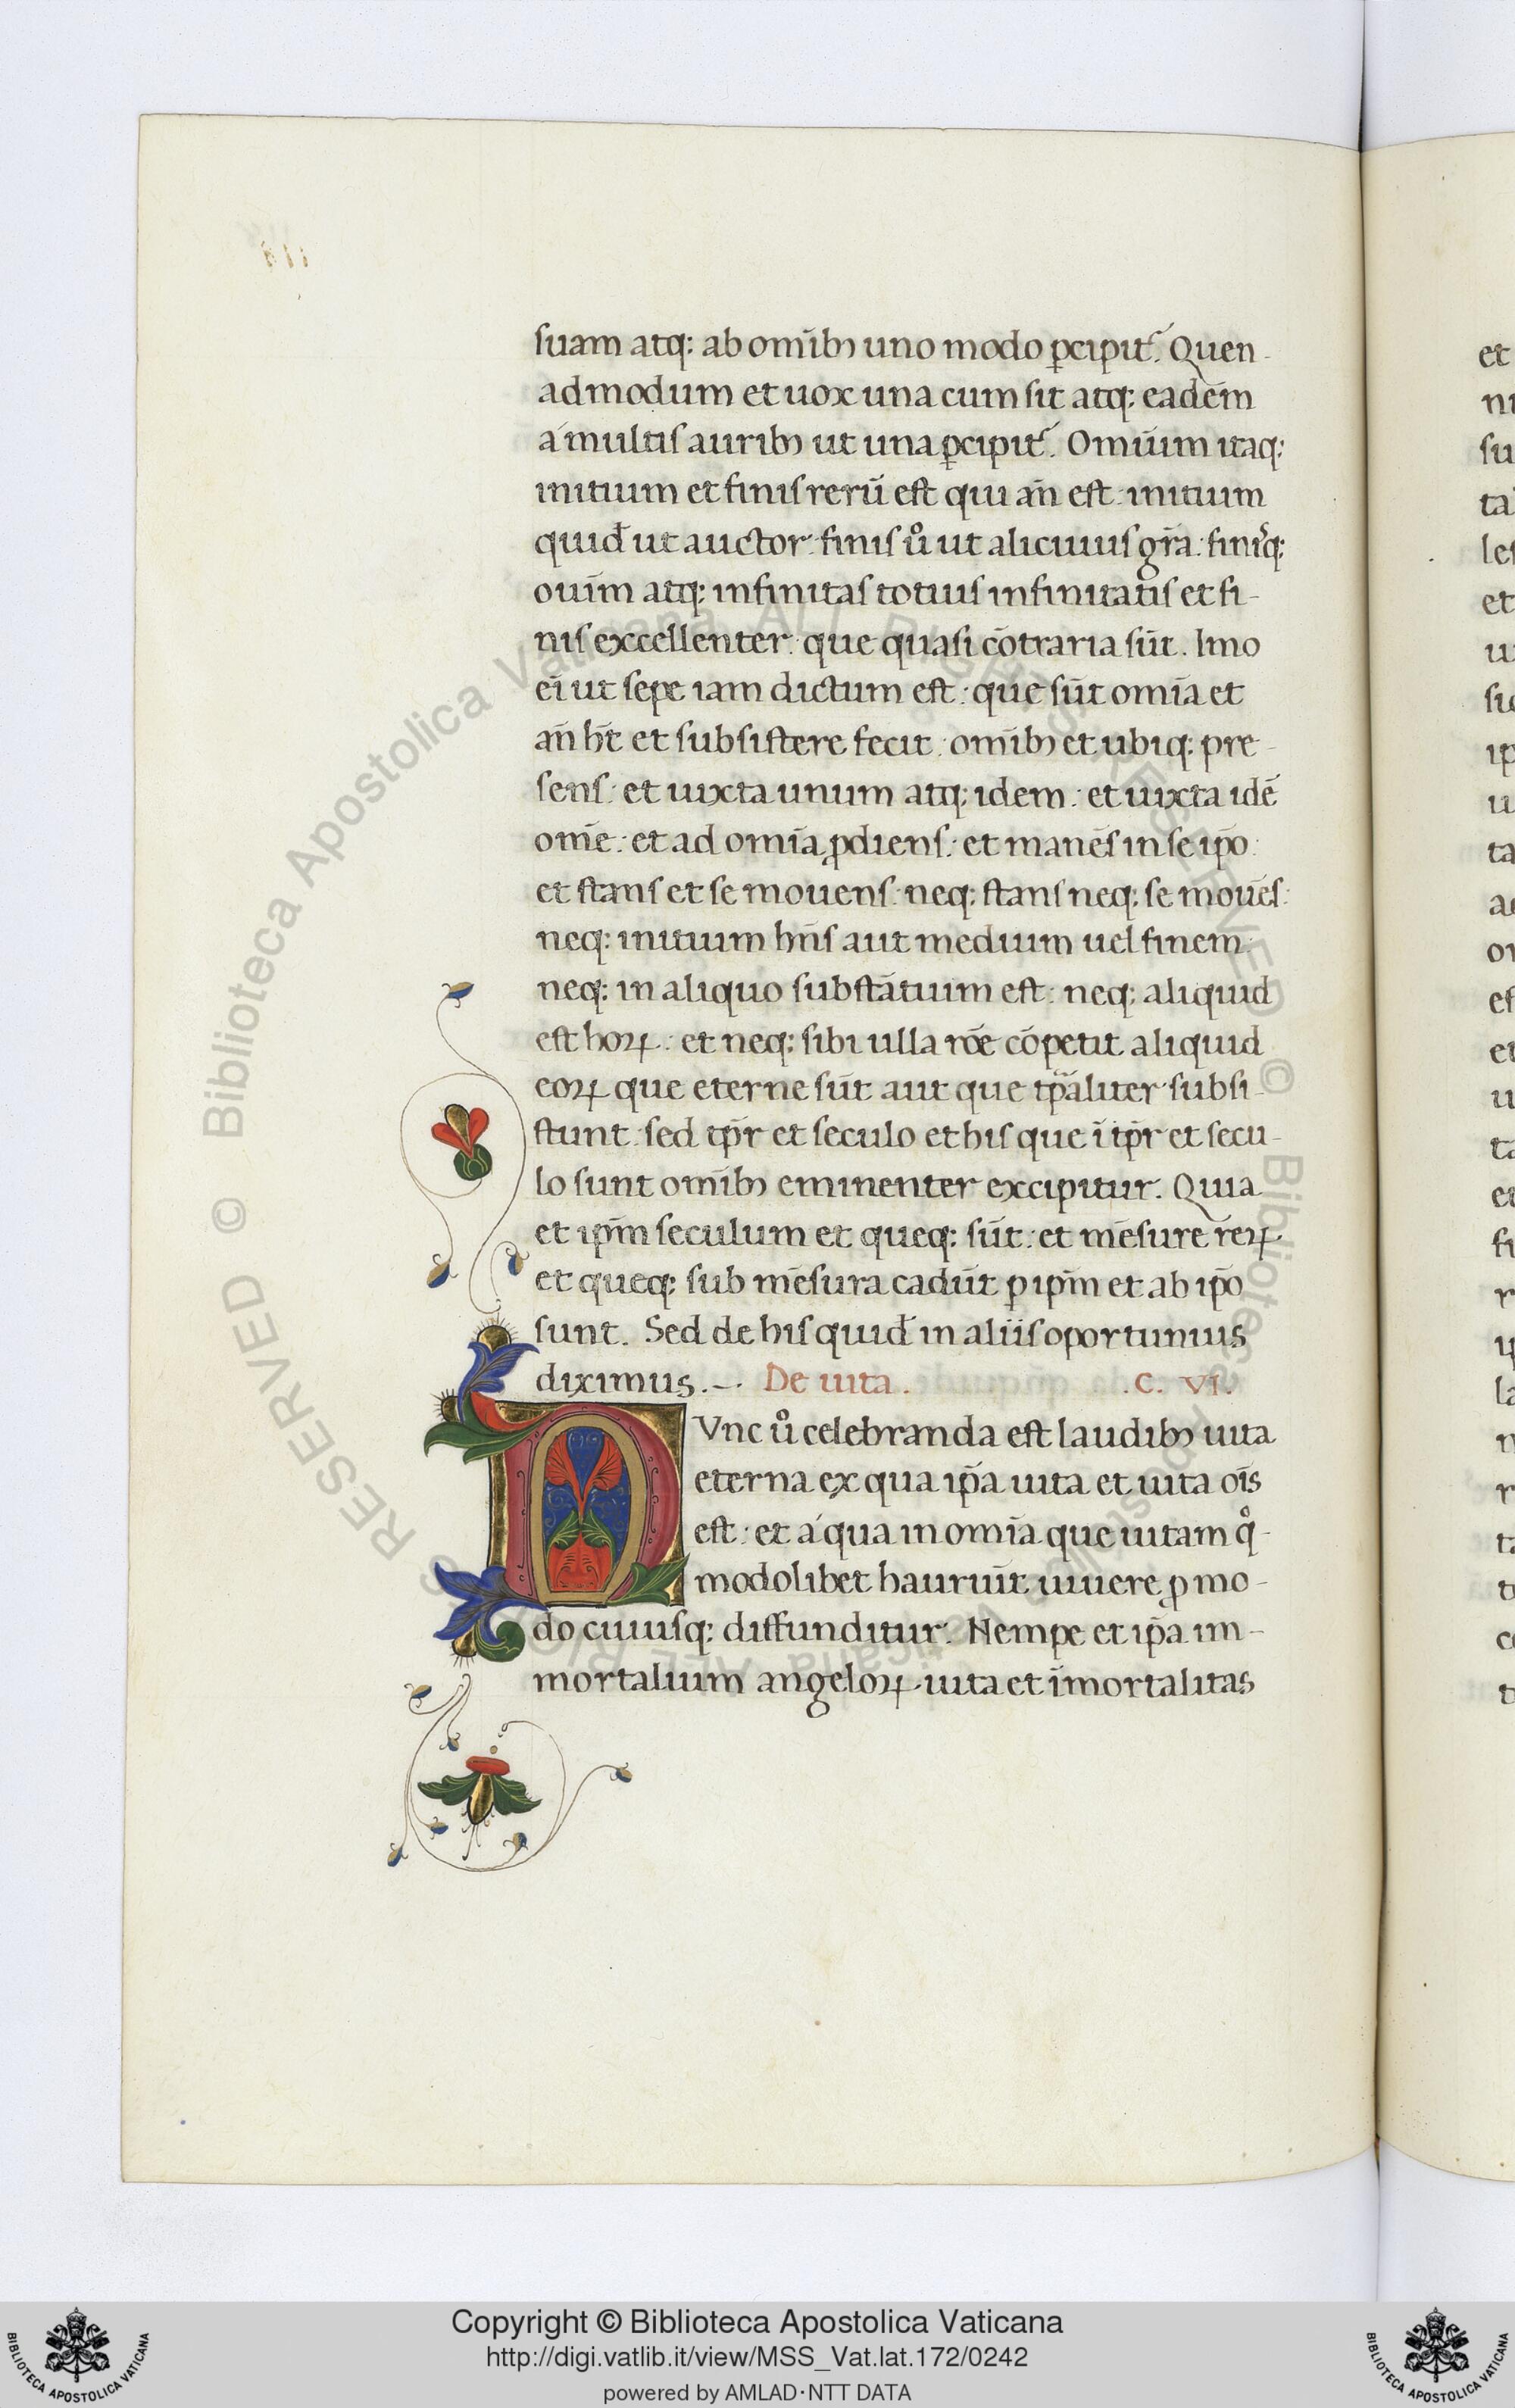 suam atq: ab om̄ibꝫ uno modo ꝑcipit᷑. Quen-
admodum et uox una cum sit atq: eadem
á multis auribꝫ ut una ꝑcipit᷑. Omīum itaq:
initium et finis rerū est qui añ est: initium
quid̄ ut auctor: finis ů ut alicuius gr̄a: finisq:
ouīm atq: infinitas totius infinitatis et fi-
nis excellenter: que quasi cōtraria sūt. Imo
ei ut sepe iam dictum est: que sūt omīa et
añ h̄t et subsistere fecit: om̄ibꝫ et ubiq: pre-
sens: et iuxta unum atq: idem: et iuxta idē
om̄e: et ad omīa ꝓdiens: et manēs in se ip̄o:
et stans et se mouens: neq: stans neq: se mouēs:
neq: initium hn̄s aut medium uel finem:
neq: in aliquo substātiuim est: neq: aliquid
est hoꝝ: et neq: sibi ulla rōe cōpetit aliquid
eoꝝ que eterne sūt aut que tp̄aliter subsi-
stunt: sed tp̄r et seculo et his que ī tp̄r et secu-
lo sunt om̄ibꝫ eminenter excipitur. Quia
et ip̄m seculum et queq: sūt: et mēsure reꝝ.
et queq: sub mēsura cadūt ꝑ ip̄m et ab ip̄o
sunt. Sed de his quid̄ in aliis oportunius
diximus.–. De uita. .C. VI.
NVnc ů celebranda est laudibꝫ uita
eterna ex qua ip̄a uita et uita oīs
est: et á qua in omīa que uitam qͦ-
modolibet hauriūt uiuere ꝓ mo-
do cuiusq: diffunditur. Nempe et ip̄a im-
mortalium angeloꝝ uita et īmortalitas
Copyright © Biblioteca Apostolica Vaticana
http://digi.vatlib.it/view/MSS_Vat.lat.172/0242
powered by AMLAD·NTT DATA